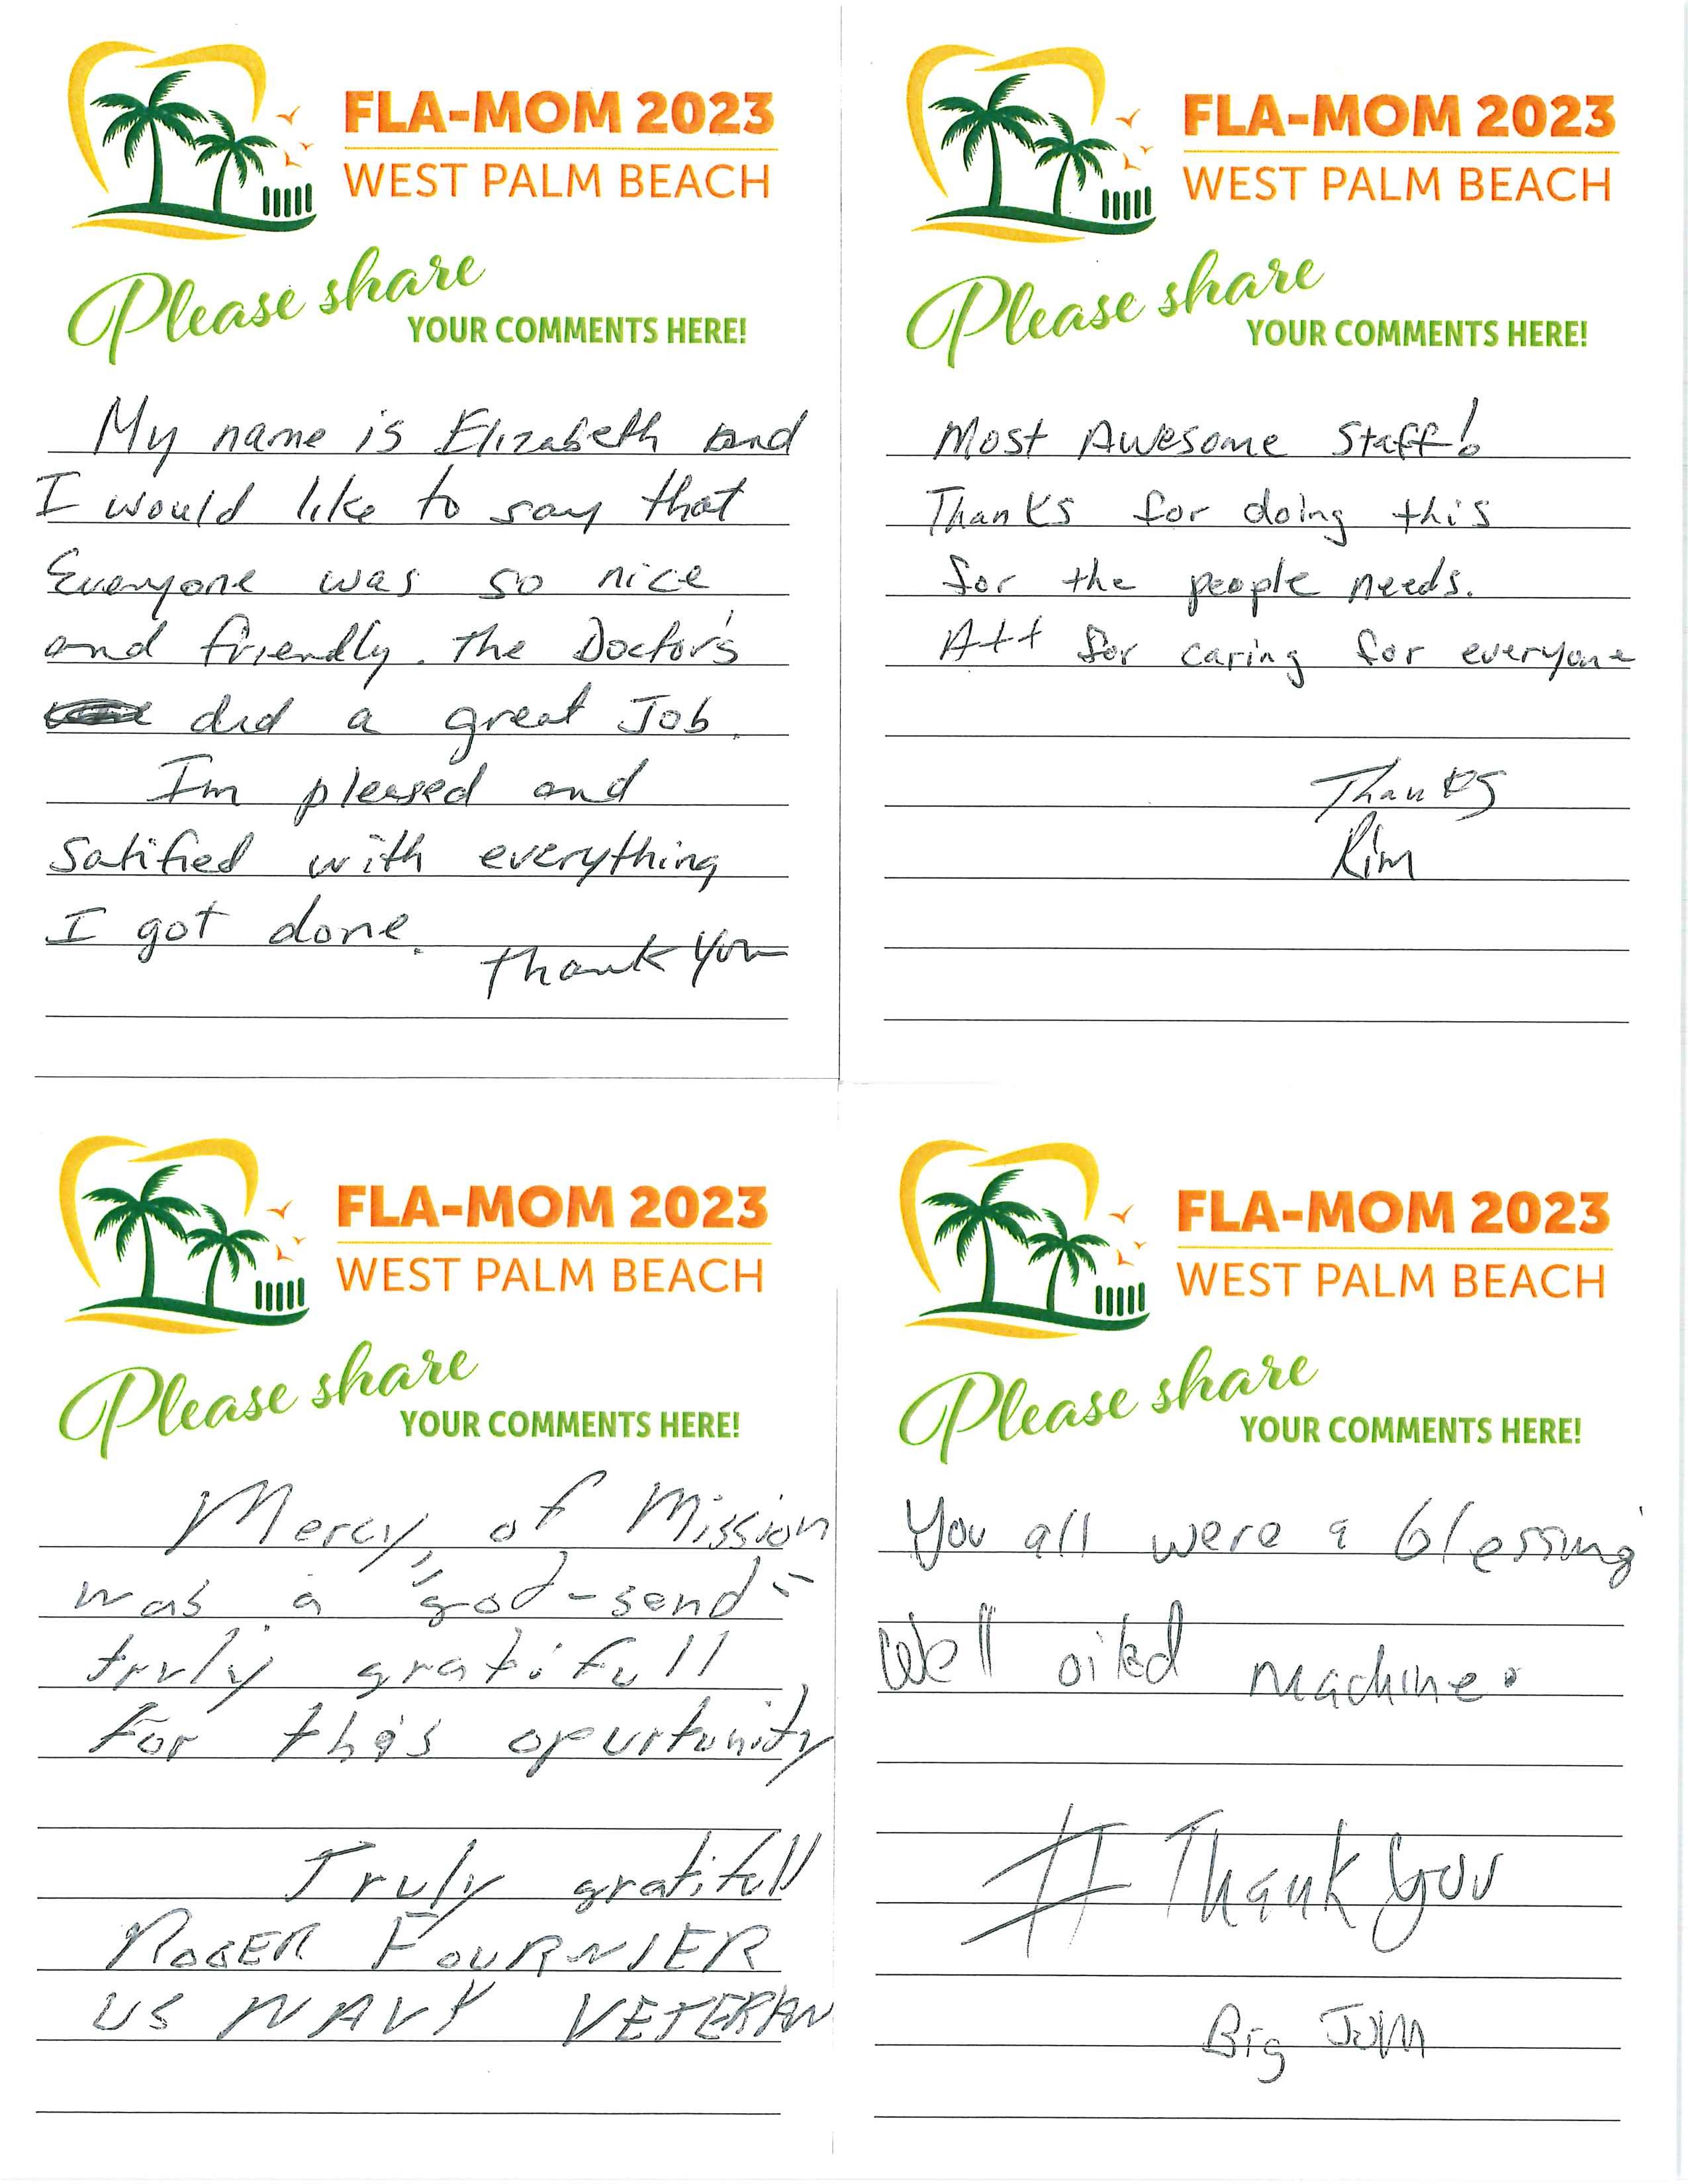 FLA-MOM 2023
WEST PALM BEACH
Please share
YOUR COMMENTS HERE!
My name is Elizabeth and
I would like to say that
Everyone was so nice
and friendly. The Doctor's
did a great Job.
I'm pleased and
Satified with everything
I got done.
Thank you
FLA-MOM 2023
WEST PALM BEACH
Please share
YOUR COMMENTS HERE!
Most Awesome Staff!
Thanks for doing this
for the people needs.
A++ for caring for everyone
Thanks
Kim
FLA-MOM 2023
WEST PALM BEACH
Please share
YOUR COMMENTS HERE!
Mercy, of Mission
was a "god-send"
truly gratifull
For this opurtunity
Truly gratifull
ROGER FOURNIER
US NAVY VETERAN
FLA-MOM 2023
WEST PALM BEACH
Please share
YOUR COMMENTS HERE!
You all were a blessing
Well oiled machine.
# Thank You
Big